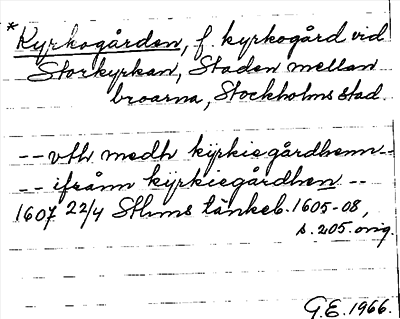 *Kyrkogården, f. kyrkogård vid
Storkyrkan, Staden mellan
broarna, Stockholms stad.
-- vth medh kÿrkiegårdhenn --
-- ifrånn kÿrkiegårdhen --
1607 22/4 Sthms tänkeb. 1605-08,
s. 205. orig.
G.E. 1966.